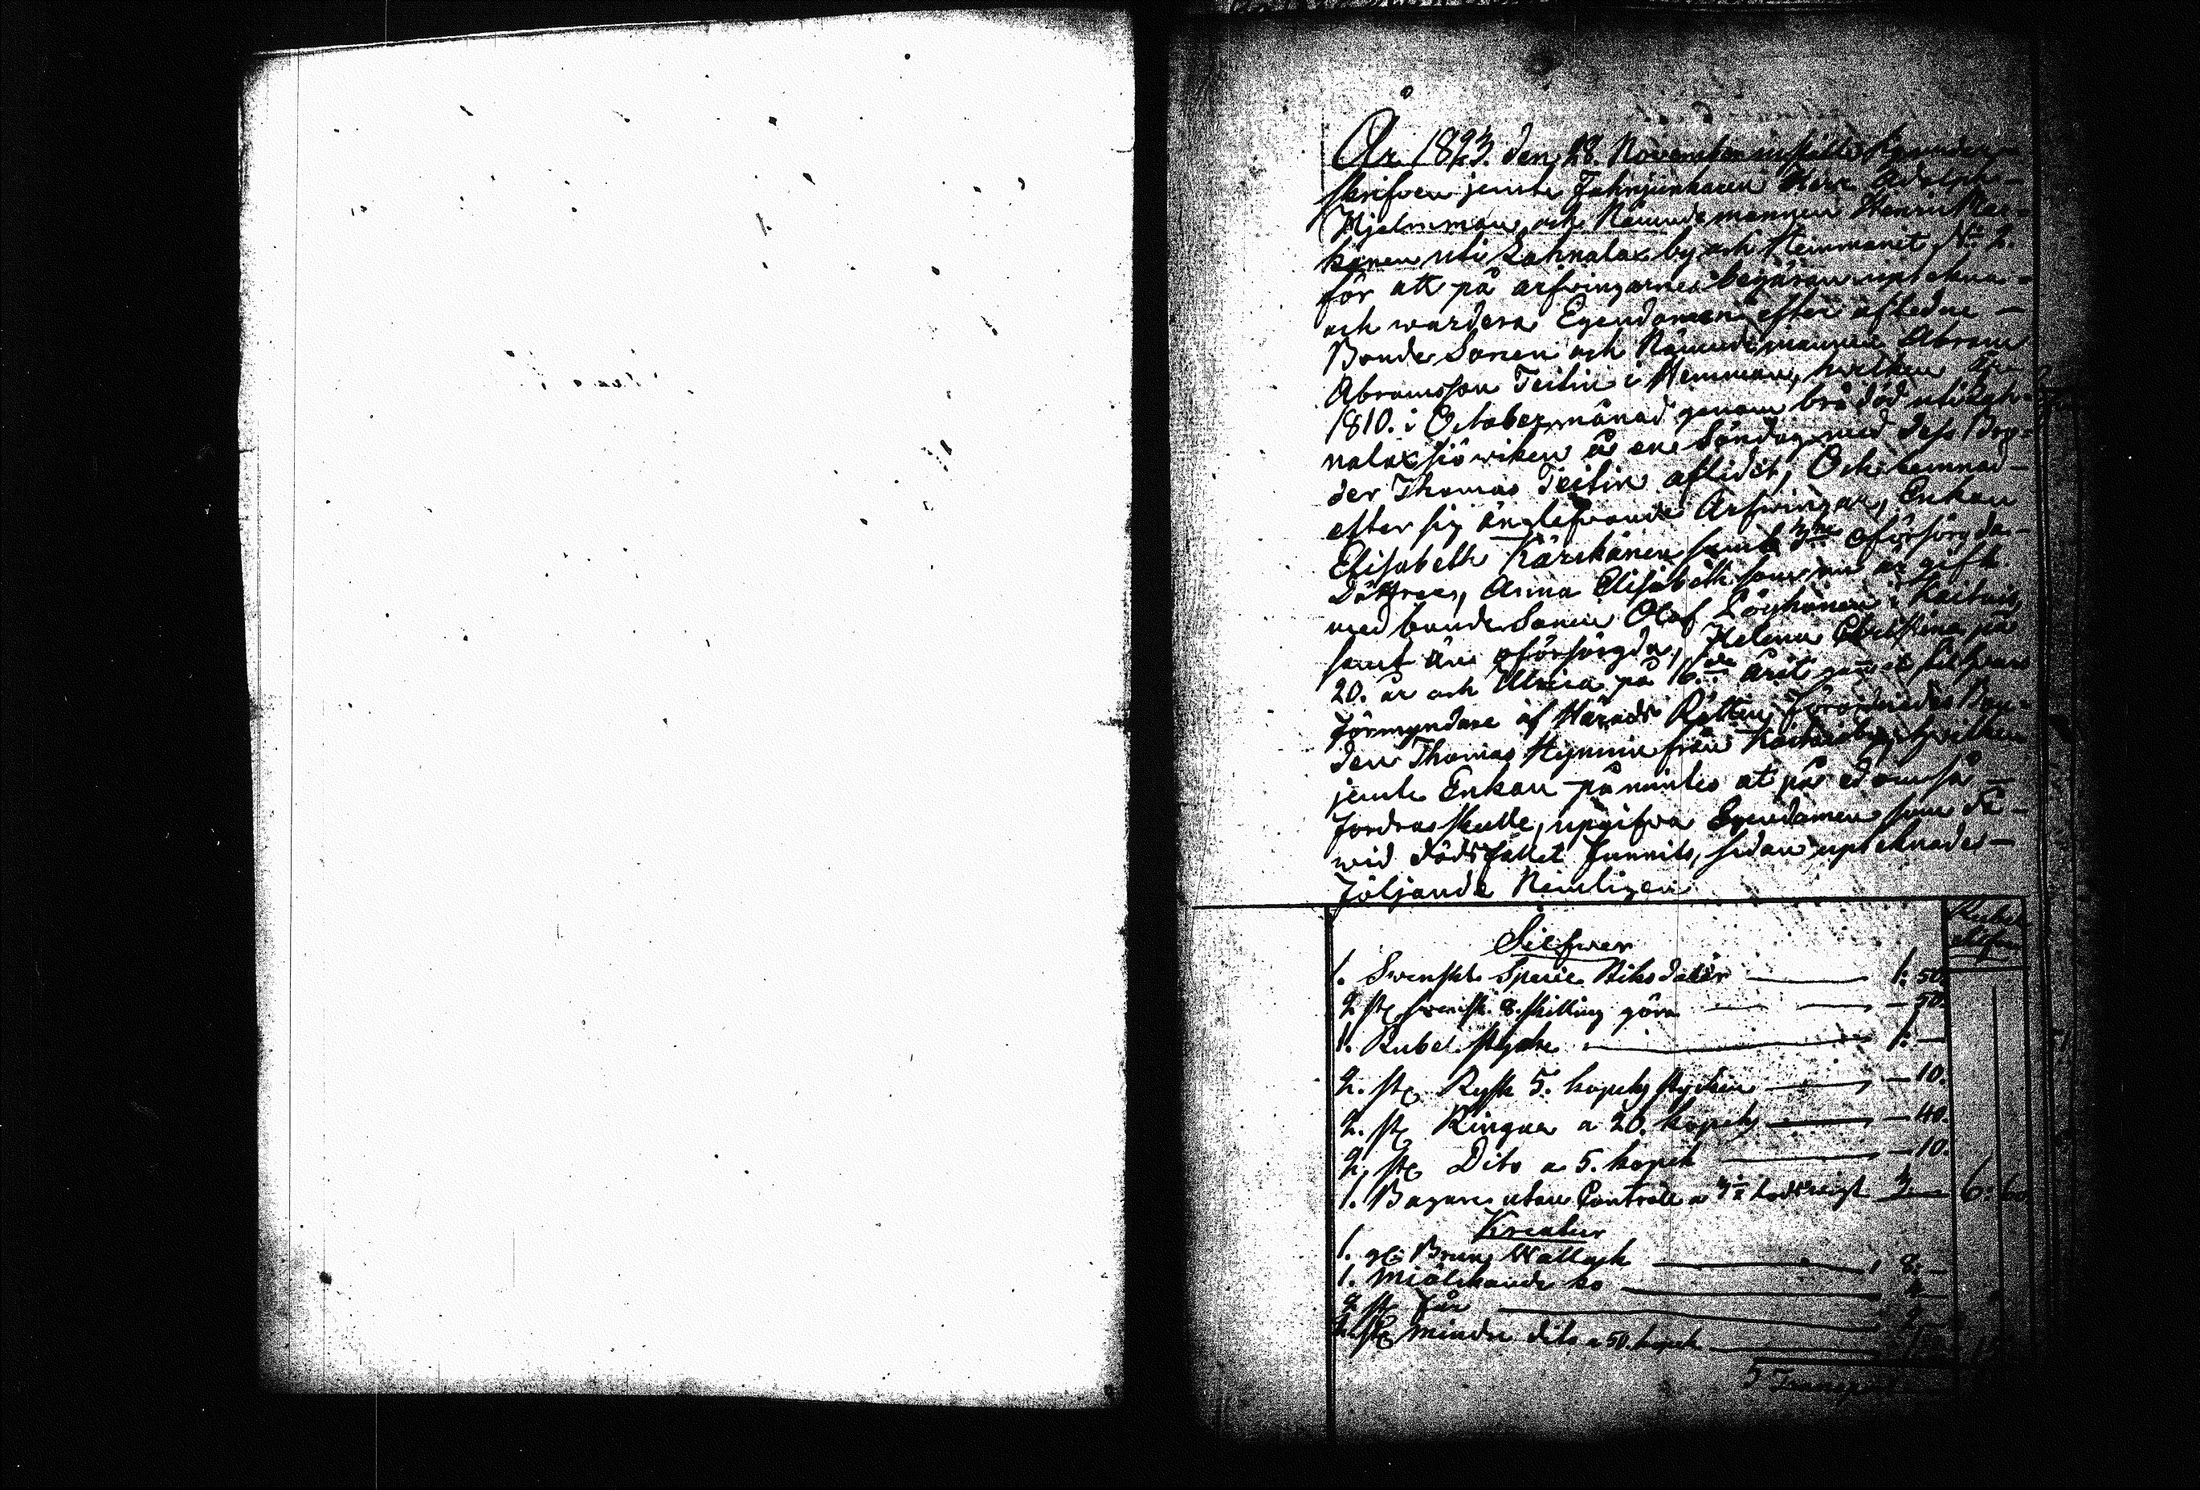 År 1823. den 28. November instälte
skrifven jemte Fahnjunkaren Herr Adolph
Hjelmman och Nämndemannen Henrik Kär-
känen uti Lahnalax by och Hemmanet No 2.
för att på arfvingarnes begäran uptekna
och wardera Egendomen efter aflednе
Bonde Sonen och Nämndemannen Abram
Abramsson Teitin i Hemman, hvilken
1810. i October månad genom brå död uti Lah-
nalax siö wiken å en Söndag med dess Bro-
der Thomas Teitin aflidit, Och lemnad
efter sig änglefvande Arfvingar, Enkan
Elisabeth Kärckänen samt 3ne oförsörgda
Döttrar, Anna Elisabeth som nu är gift
med bonde Sonen Olof Löyhönen i
samt än oförsörgda, Helena Christina på
20. år och Ulrica på 16.de året
Förmyndare af Härads Rätten förordnades Bon-
den Thomas Hynnin från by, hvilken
jemte Enkan påmintes at på ed om så
fordras skulle, upgifva Egendomen som då
wid dödsfallet funnits, sedan upteknades
följande Nemligen
Rubel
Silfwer
1. Swenskt Specie Riksdaler 1: 50.
2 st. swensk. 8. skilling — 50.
1. Rubel stycke 1: —
2. st. Rysk 5. kopek stycken — 10.
2. st. Ringar a 20. kopek — 40.
2. st. Dito a 5. kopek — 10.
1. Bagare utan Controll a 3 3 — 6: 60
Kreatur
1. gl. Brun Wallack 8: —
1. Miölckande ko
2 st. Får
2 st. mindre dito a 50. kopek
Transport